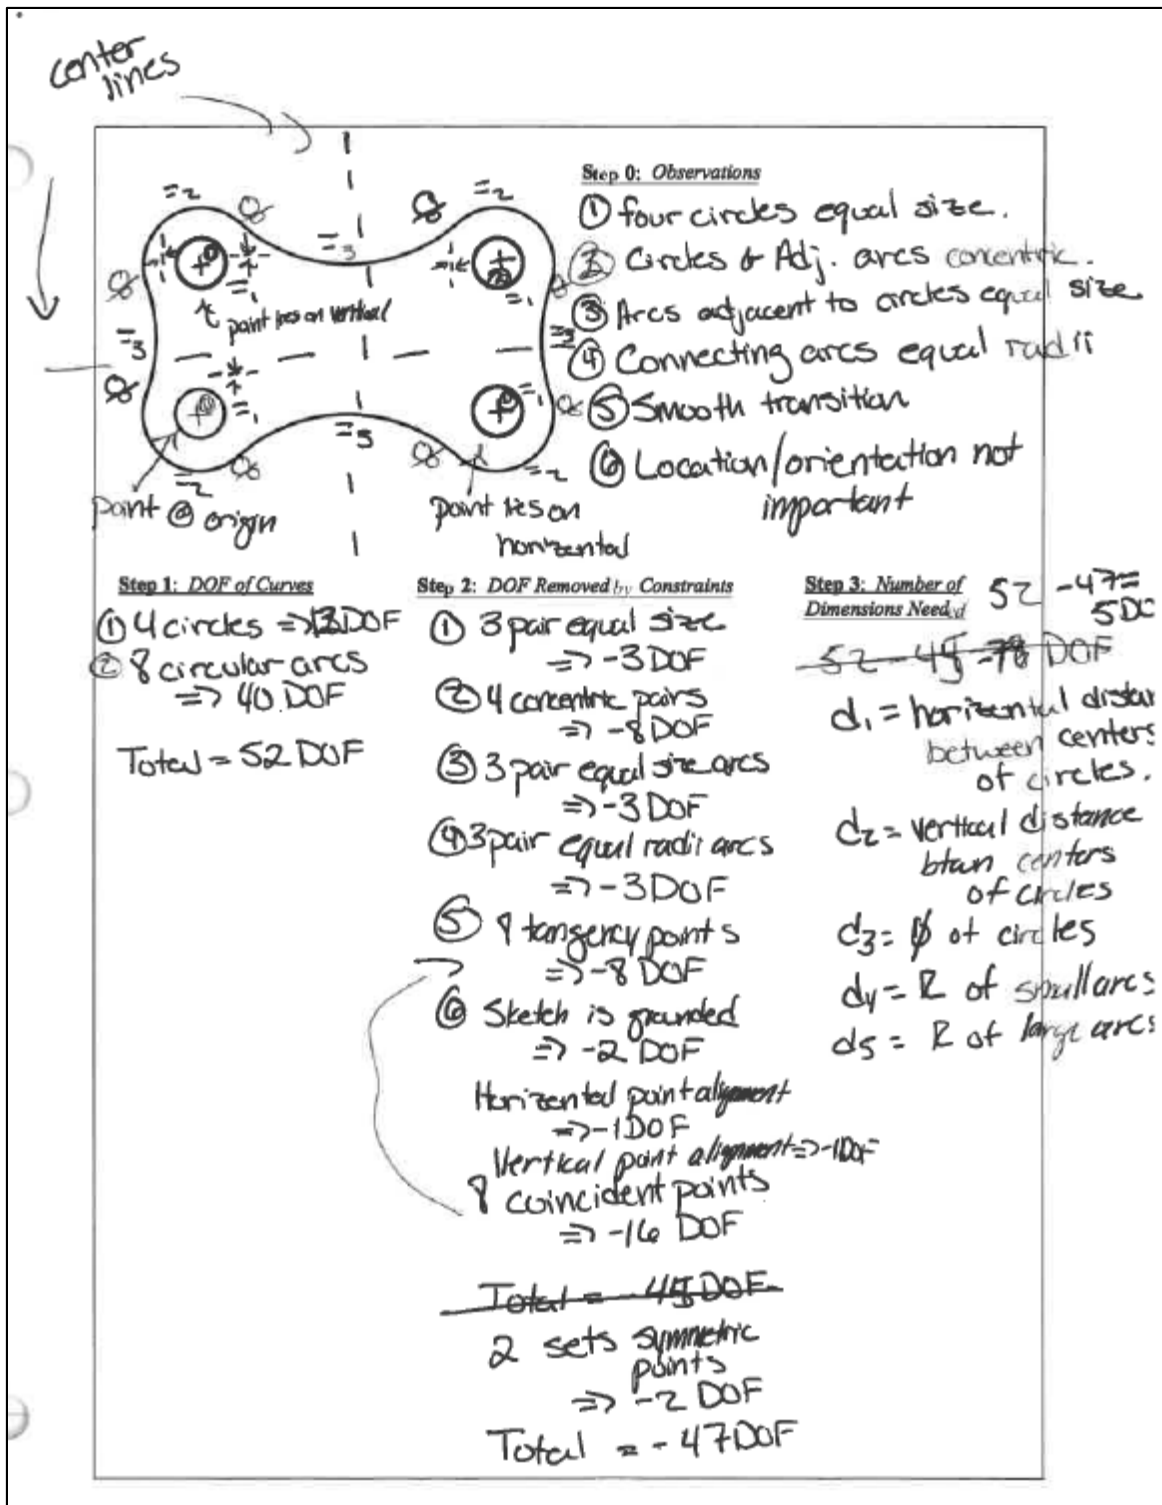 center
lines
=2
=2
=3
=1
=1
point lies on vertical
=3
=3
=1
=1
=3
=2
=2
point @ origin
point lies on
horizontal
Step 0: Observations
① four circles equal size.
② Circles & Adj. arcs concentric.
③ Arcs adjacent to circles equal size
④ Connecting arcs equal radii
⑤ Smooth transition
⑥ Location/orientation not
important
Step 1: DOF of Curves
① 4 circles => 12 DOF
② 8 circular arcs
=> 40 DOF
Total = 52 DOF
Step 2: DOF Removed by Constraints
① 3 pair equal size
=> -3 DOF
② 4 concentric pairs
=> -8 DOF
③ 3 pair equal size arcs
=> -3 DOF
④ 3 pair equal radii arcs
=> -3 DOF
⑤ 8 tangency points
=> -8 DOF
⑥ Sketch is grounded
=> -2 DOF
Horizontal point alignment
=> -1 DOF
Vertical point alignment => -1 DOF
8 coincident points
=> -16 DOF
Total = -45 DOF
2 sets symmetric
points
=> -2 DOF
Total = -47 DOF
Step 3: Number of
Dimensions Needed
52 -47=
5 DO
52 - 45 DOF
d1 = horizontal distan
between centers
of circles.
d2 = vertical distance
btwn centers
of circles
d3 = Ø of circles
d4 = R of small arcs
d5 = R of large arcs